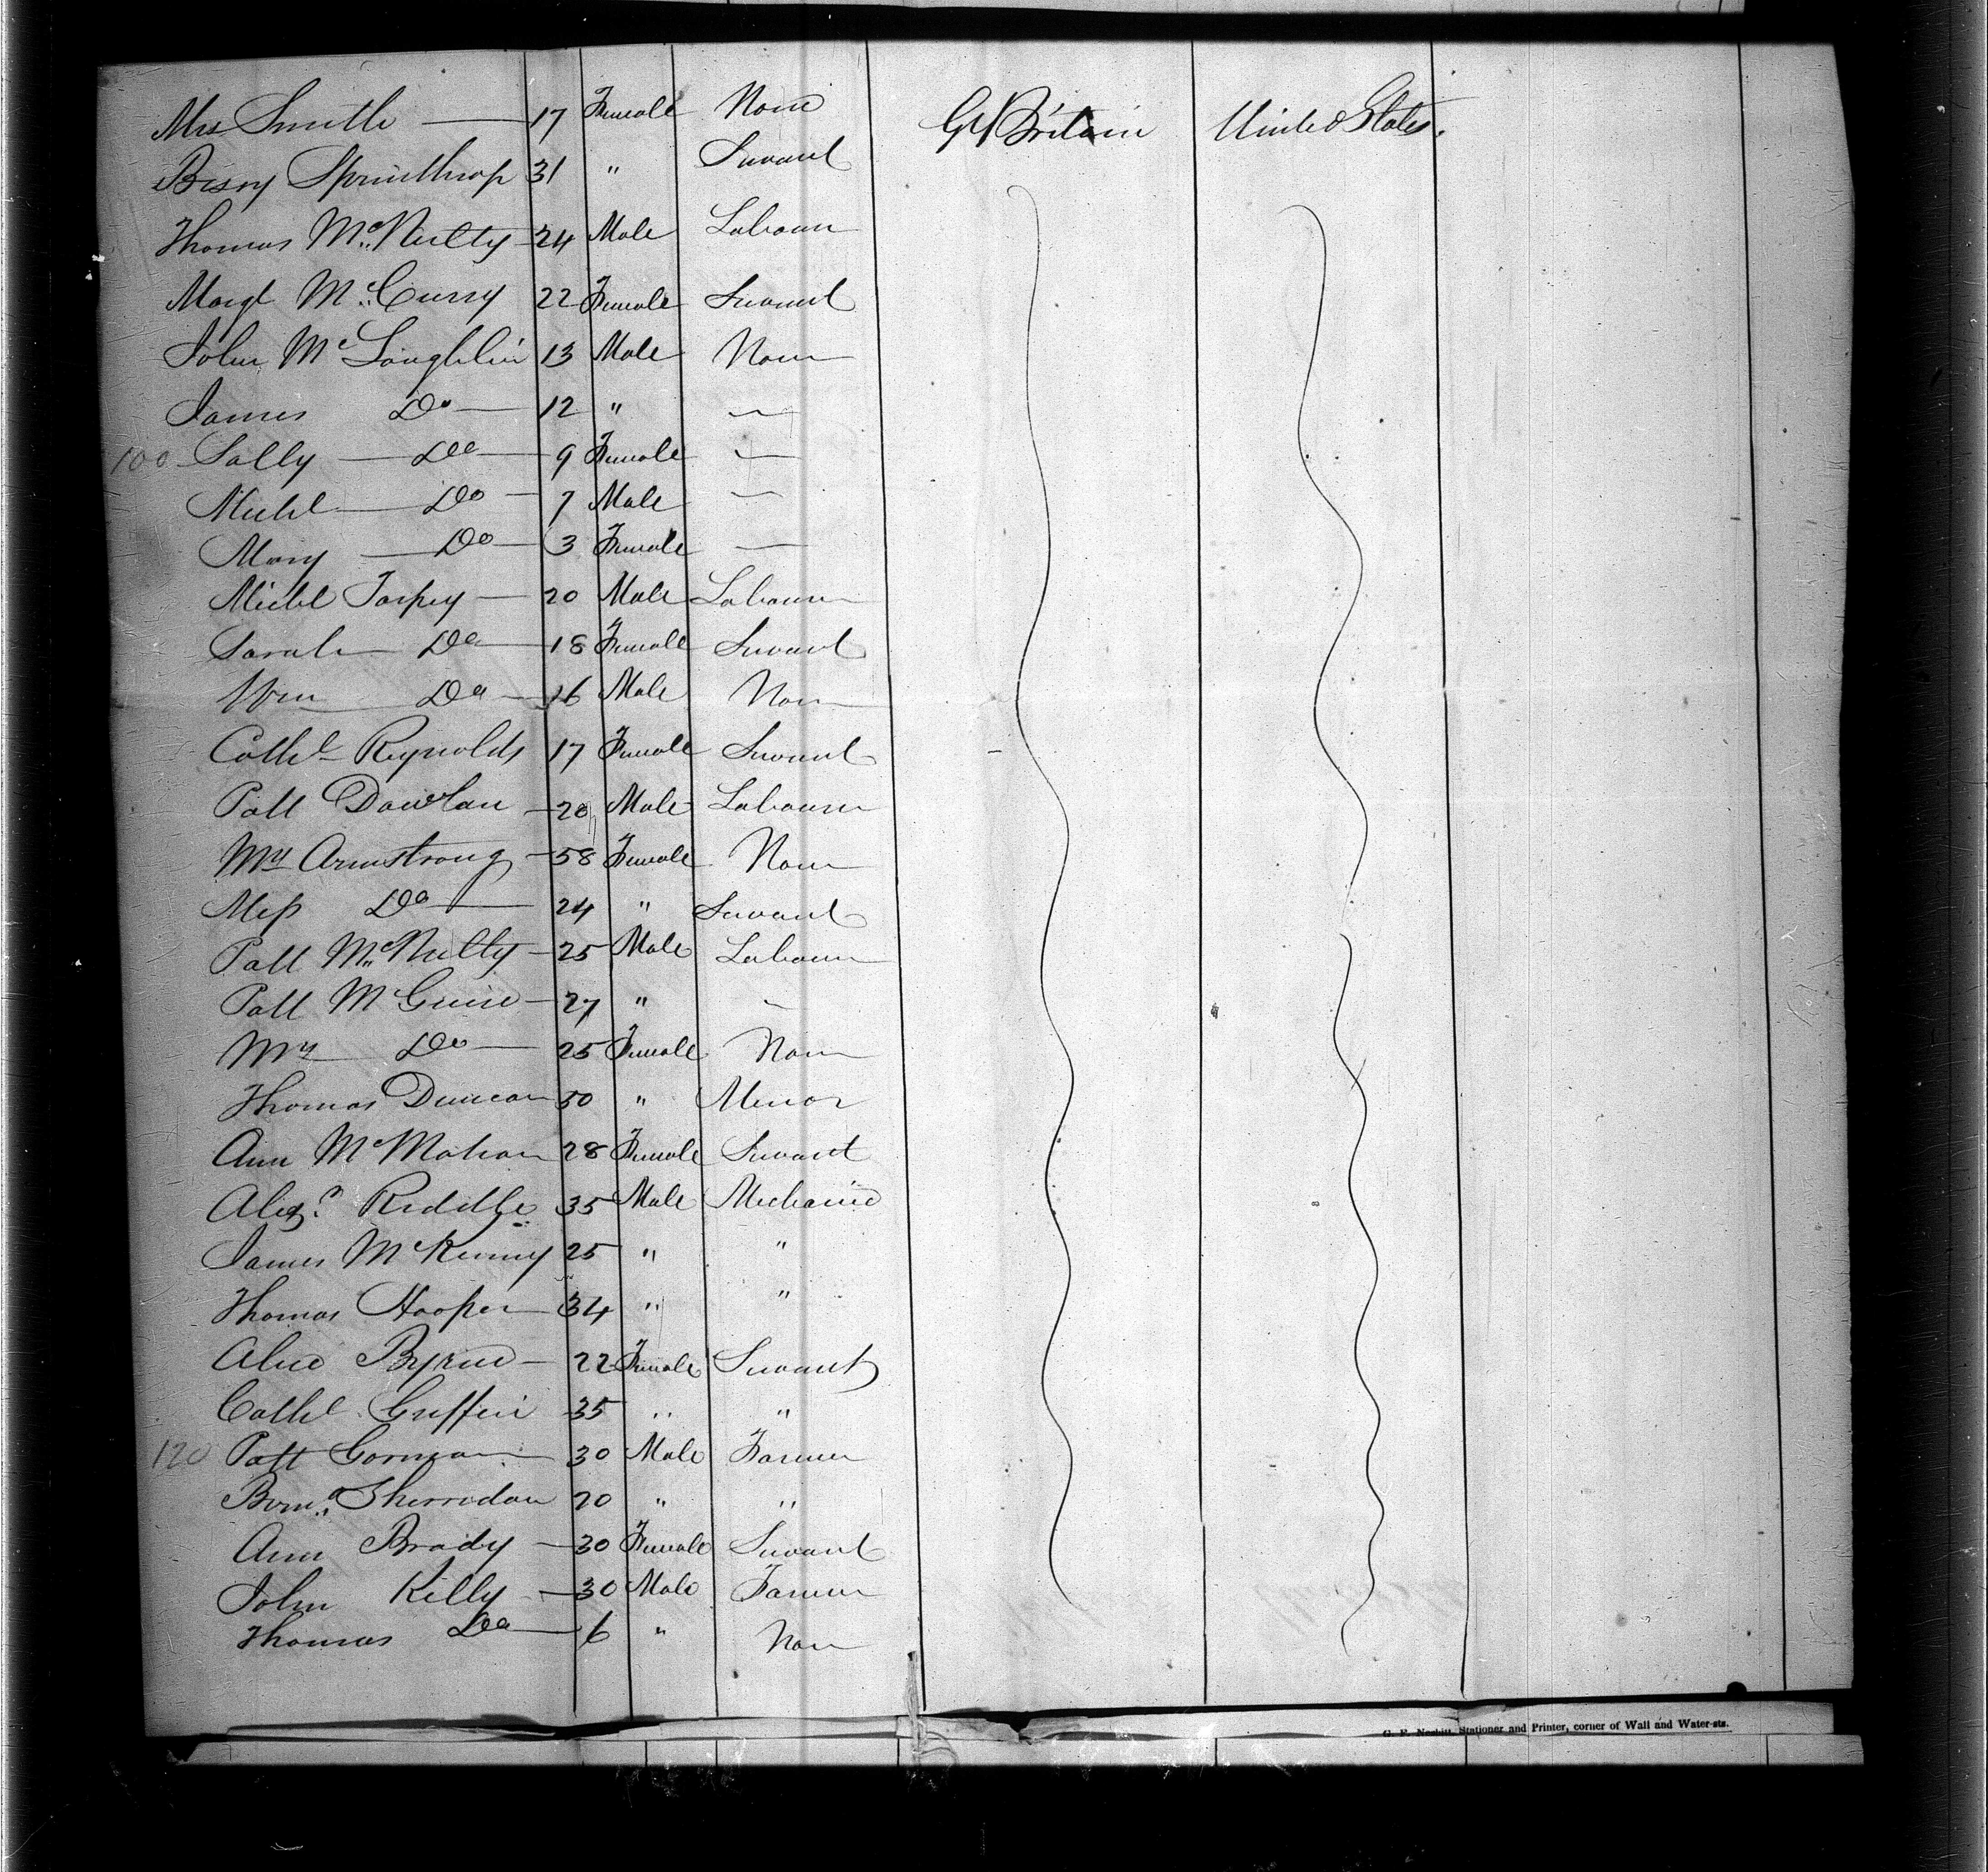 Mrs Smith — 17 Female None Gt Britain United States.
Betsy Sprinthrop 31 " Servant
Thomas Mc Nulty 24 Male Labourer
Margt Mc Curry 22 Female Servant
John Mc Loughlin 13 Male None
James Do — 12 " —
100 Sally — Do — 9 Female —
Michl — Do — 7 Male —
Mary — Do — 3 Female —
Michl Torpey — 20 Male Labourer
Sarah Do — 18 Female Servant
Wm Do — 16 Male None
Cathe Reynolds 17 Female Servant
Patt Dowlan — 20 Male Labourer
My Armstrong — 58 Female None
Miss Do — 24 " Servant
Patt Mc Nulty — 25 Male Labourer
Patt Mc Guire — 27 " —
My Do — 25 Female None
Thomas Duncan 50 " Miner
Ann Mc Mahon 28 Female Servant
Alexr Riddle 35 Male Mechanic
James Mc Kenny 25 " "
Thomas Hooper — 34 " "
Alice Byrne — 22 Female Servant
Cathe Griffin 35 " "
120 Patt Gorman 30 Male Farmer
Bernd Sherridan 20 " "
Ann Brady — 30 Female Servant
John Kelly — 30 Male Farmer
Thomas Do — 6 " None
G. F. Nesbitt, Stationer and Printer, corner of Wall and Water-sts.